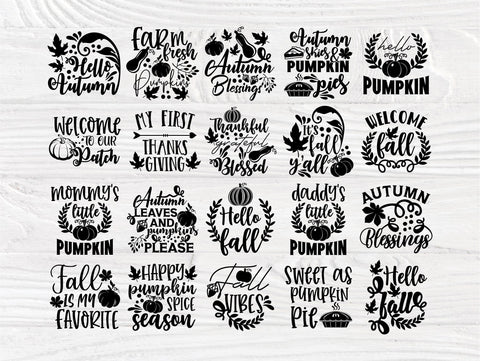 Hello
Autumn
FARM
fresh
Pumpkins
Autumn
Blessings
Autumn
Skies &
PUMPKIN
pies
hello
PUMPKIN
WELCOME
TO OUR
Patch
MY FIRST
THANKS
GIVING
Thankful
grateful
Blessed
It's
fall
y'all
WELCOME
fall
MOMMY'S
little
PUMPKIN
Autumn
LEAVES
AND
pumpkins
PLEASE
Hello
fall
daddy's
little
PUMPKIN
AUTUMN
Blessings
Fall
IS MY
FAVORITE
HAPPY
pumpkin
SPICE
season
Fall
VIBES
SWEET AS
PUMPKIN
PIE
Hello
fall